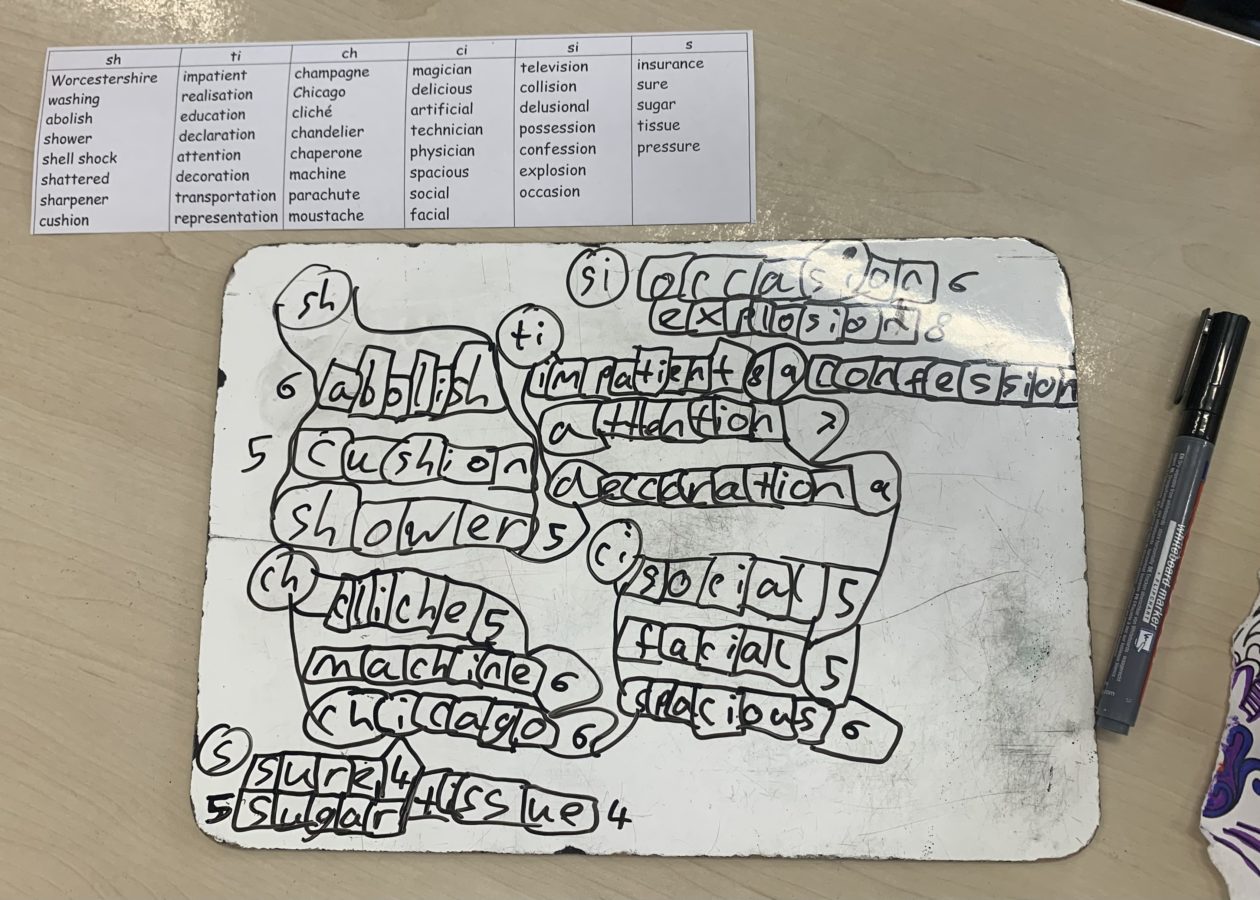 sh ti ch ci si s
Worcestershire impatient champagne magician television insurance
washing realisation Chicago delicious collision sure
abolish education cliché artificial delusional sugar
shower declaration chandelier technician possession tissue
shell shock attention chaperone physician confession pressure
shattered decoration machine spacious explosion
sharpener transportation parachute social occasion
cushion representation moustache facial
si occasion 6
explosion 8
sh
6 abolish
5 cushion
shower 5
ti
impatient 8 9 confession
attention 7
decoration 9
ch cliche 5
machine 6
chicago 6
ci social 5
facial 5
spacious 6
s sure 4
5 sugar tissue 4
whiteboard marker